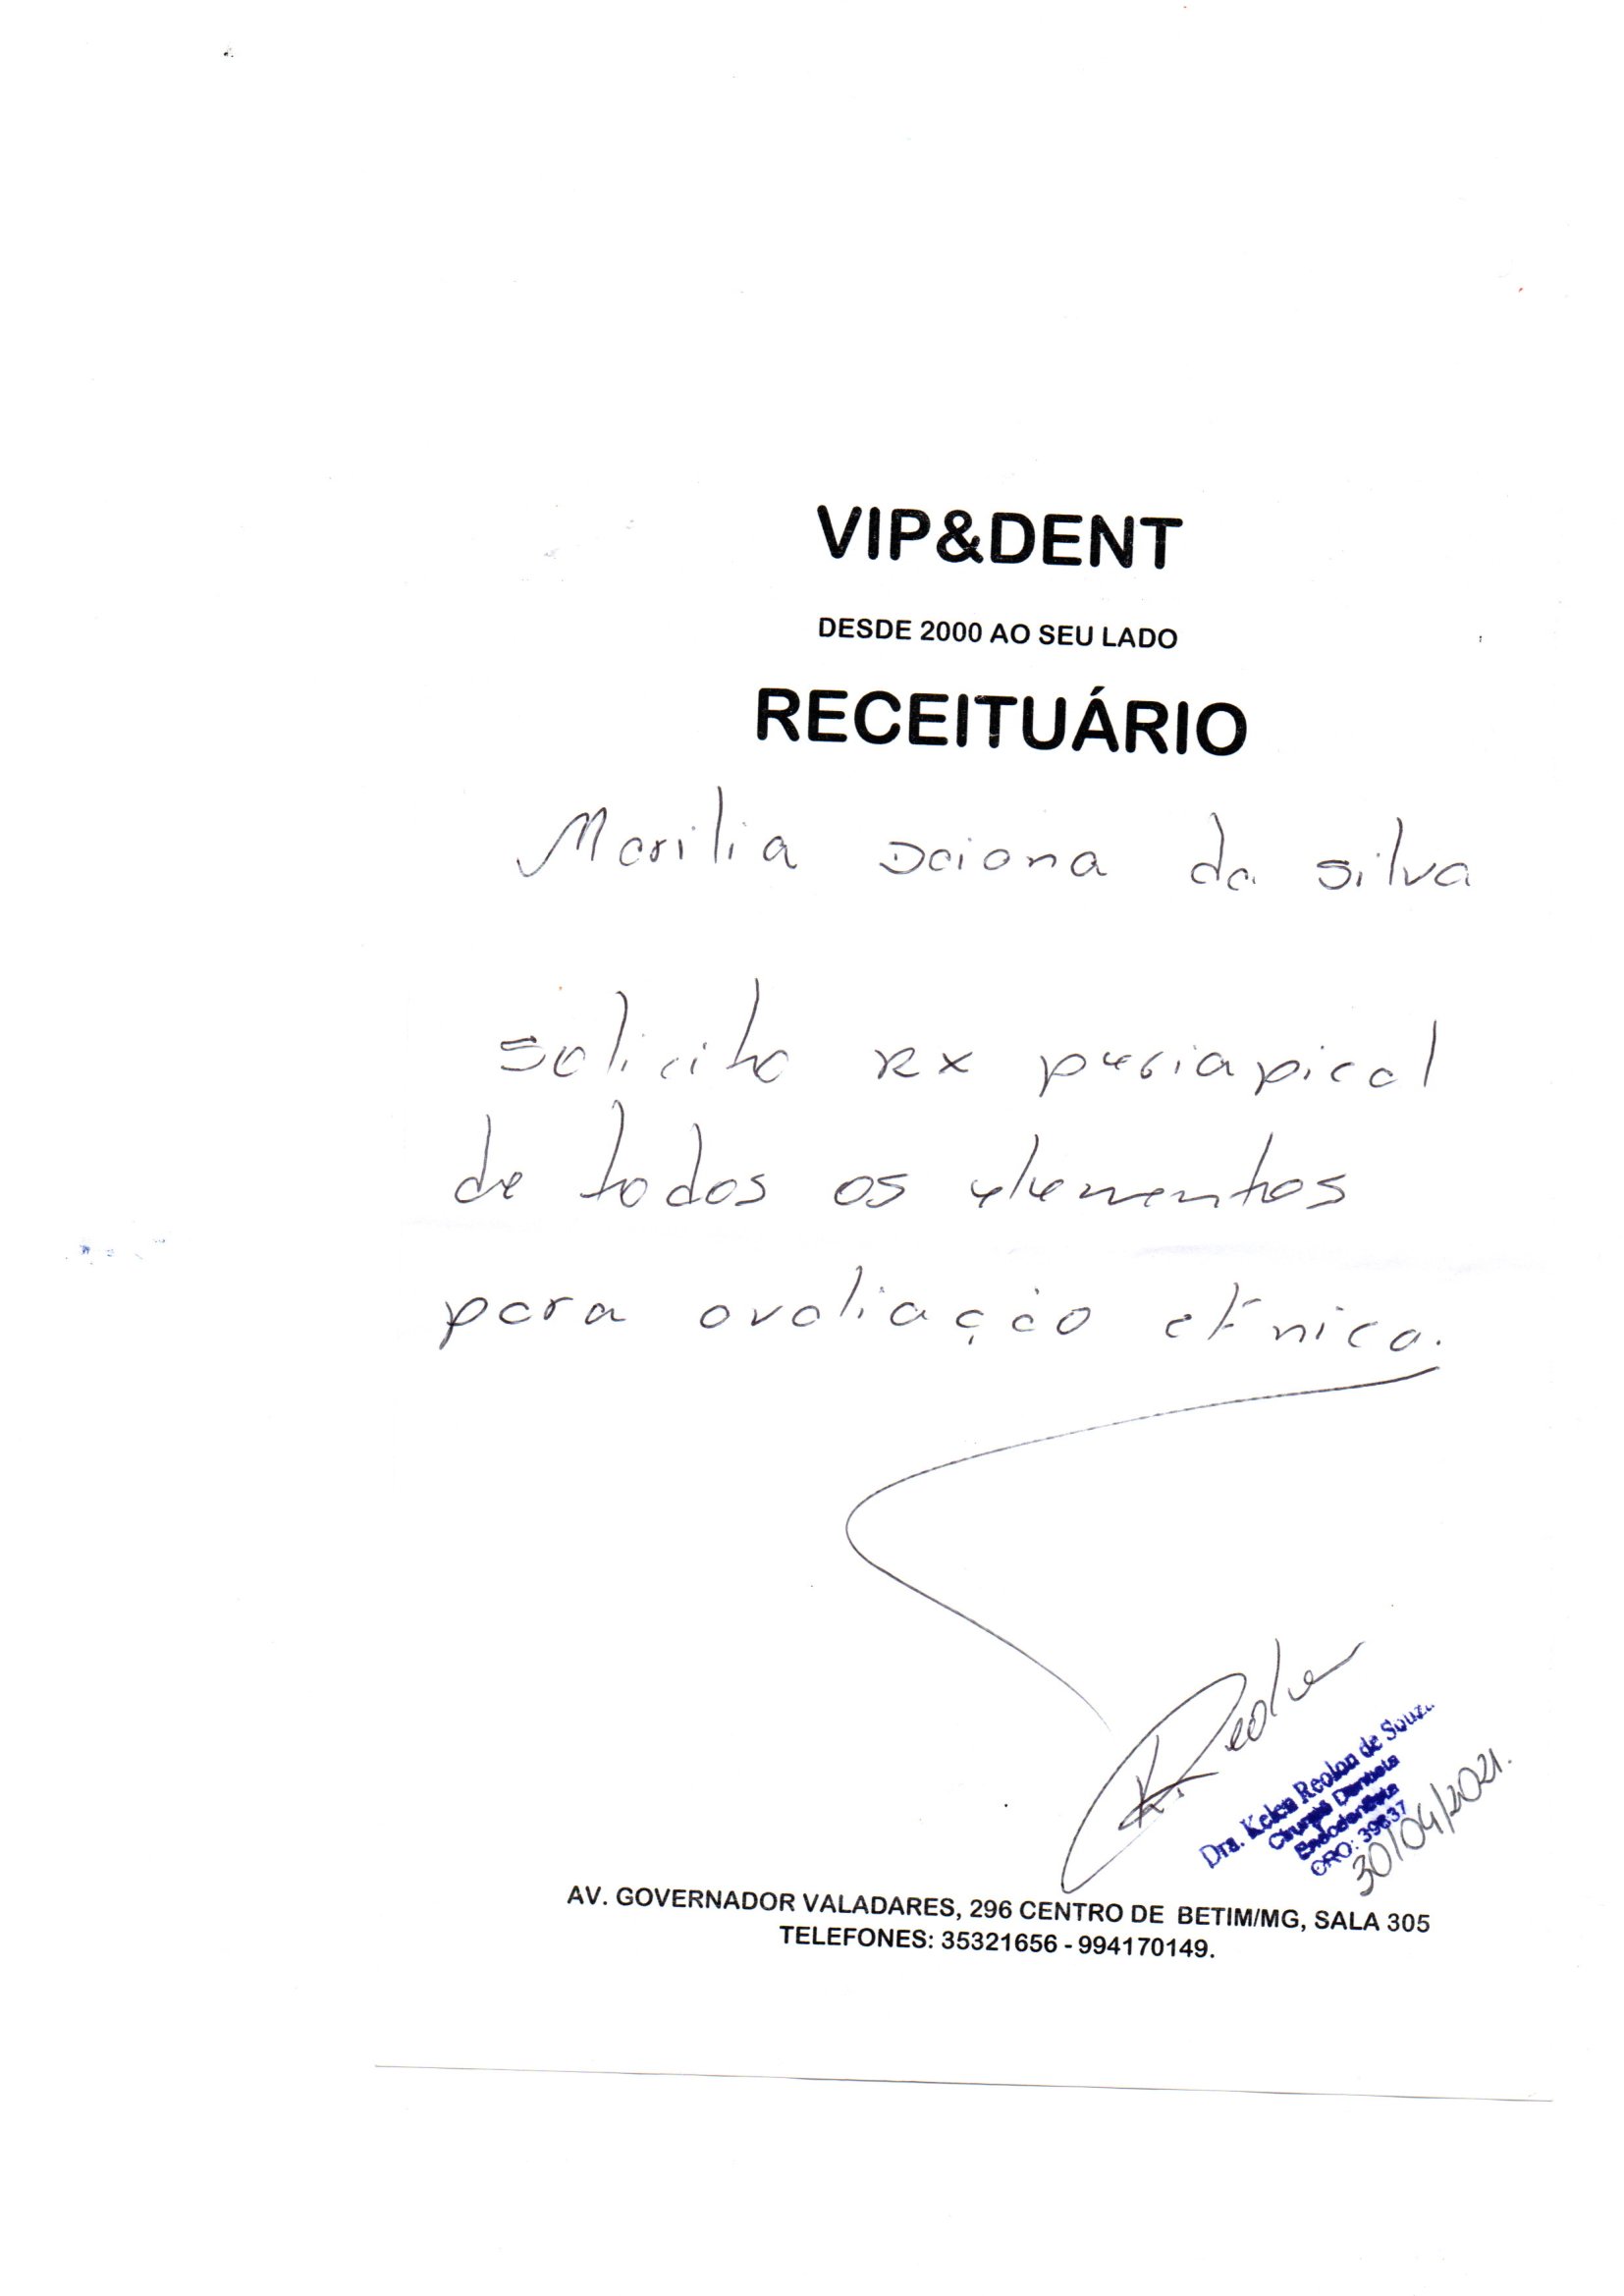 VIP&DENT
DESDE 2000 AO SEU LADO
RECEITUÁRIO
Marilia Daiana da Silva
Solicito RX periapical
de todos os elementos
para avaliação clínica.
K. Reolon
Dra. Kelen Reolon de Souza
Cirurgiã Dentista
Endodontista
CRO: 39837
30/04/2021.
AV. GOVERNADOR VALADARES, 296 CENTRO DE BETIM/MG, SALA 305
TELEFONES: 35321656 - 994170149.